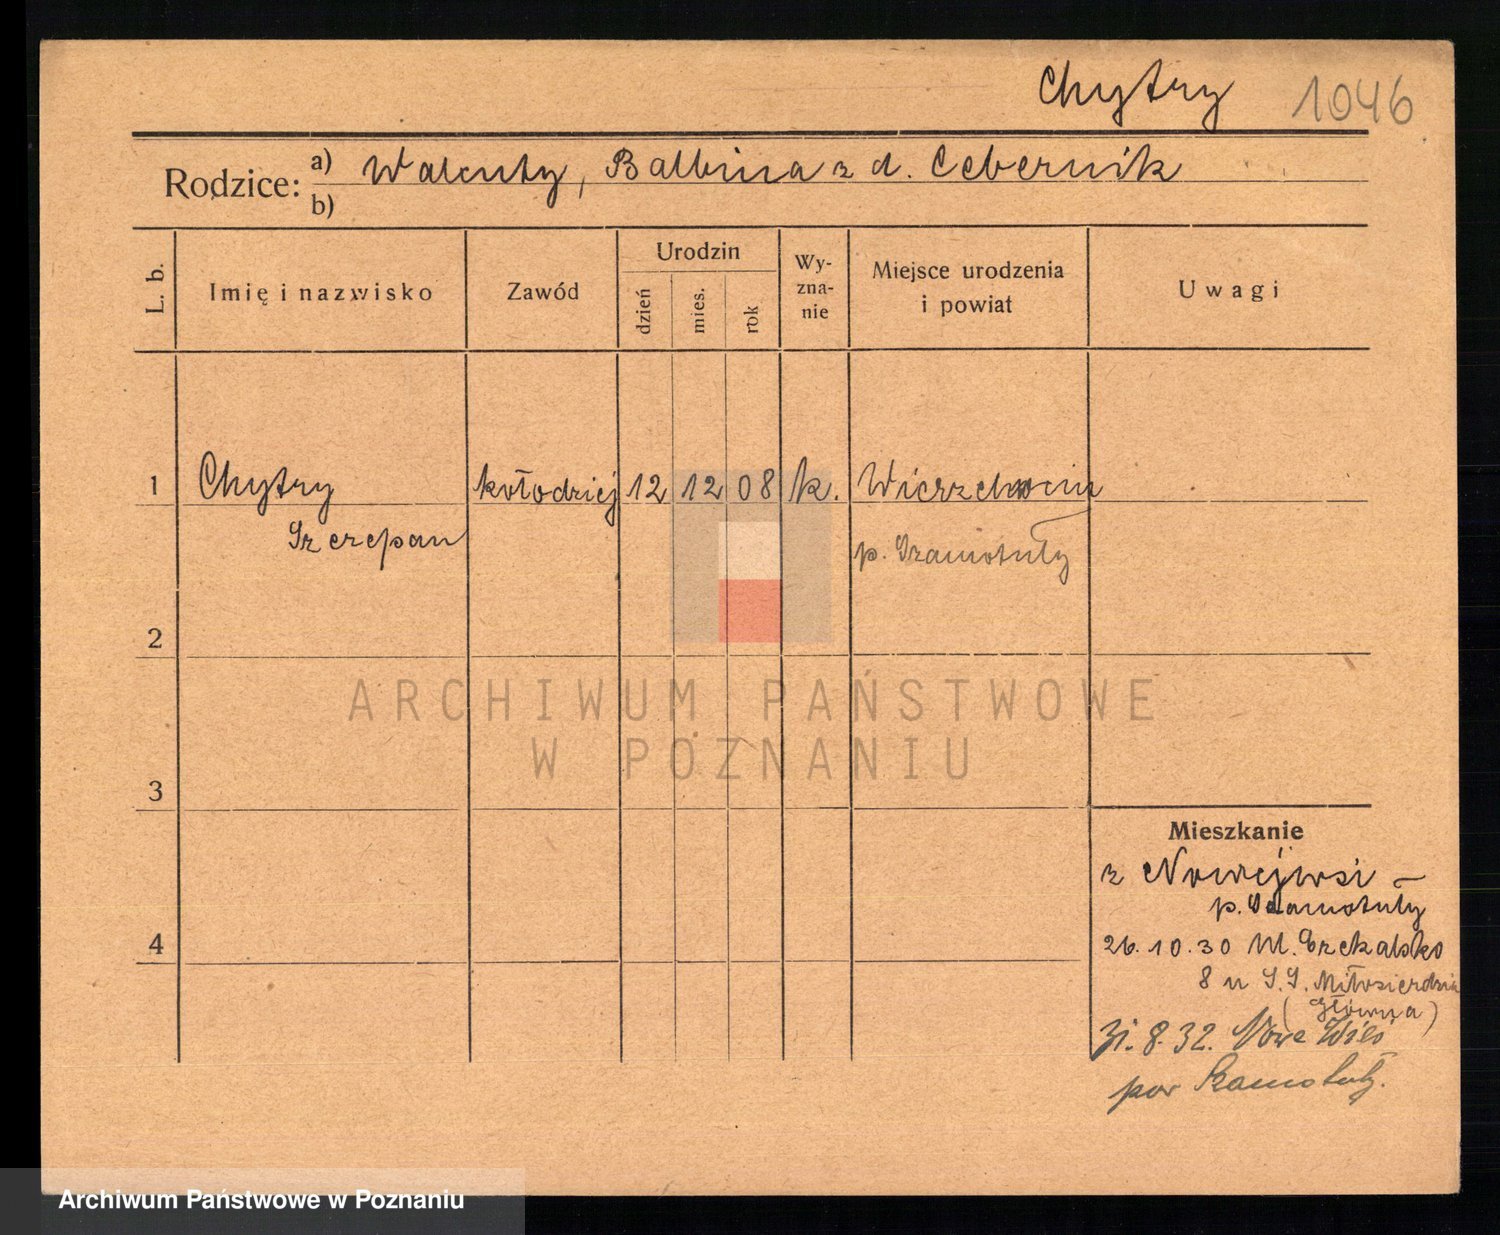 Chytry 1046
Rodzice: a) Walenty, Balbina z d. Cebernik
b)
L. b.
Imię i nazwisko
Zawód
Urodzin
dzień
mies.
rok
Wy-
zna-
nie
Miejsce urodzenia
i powiat
Uwagi
1 Chytry kołodziej 12 12 08 k. Wierzchocin
Szczepan p. Szamotuły
2
ARCHIWUM PAŃSTWOWE
W POZNANIU
3
Mieszkanie
z Nowejwsi –
p. Szamotuły
4 26.10.30 M.
8 u S.S. Miłosierdzia
(Główna)
8.32. Nowa Wieś
pow Szamotuły.
Archiwum Państwowe w Poznaniu